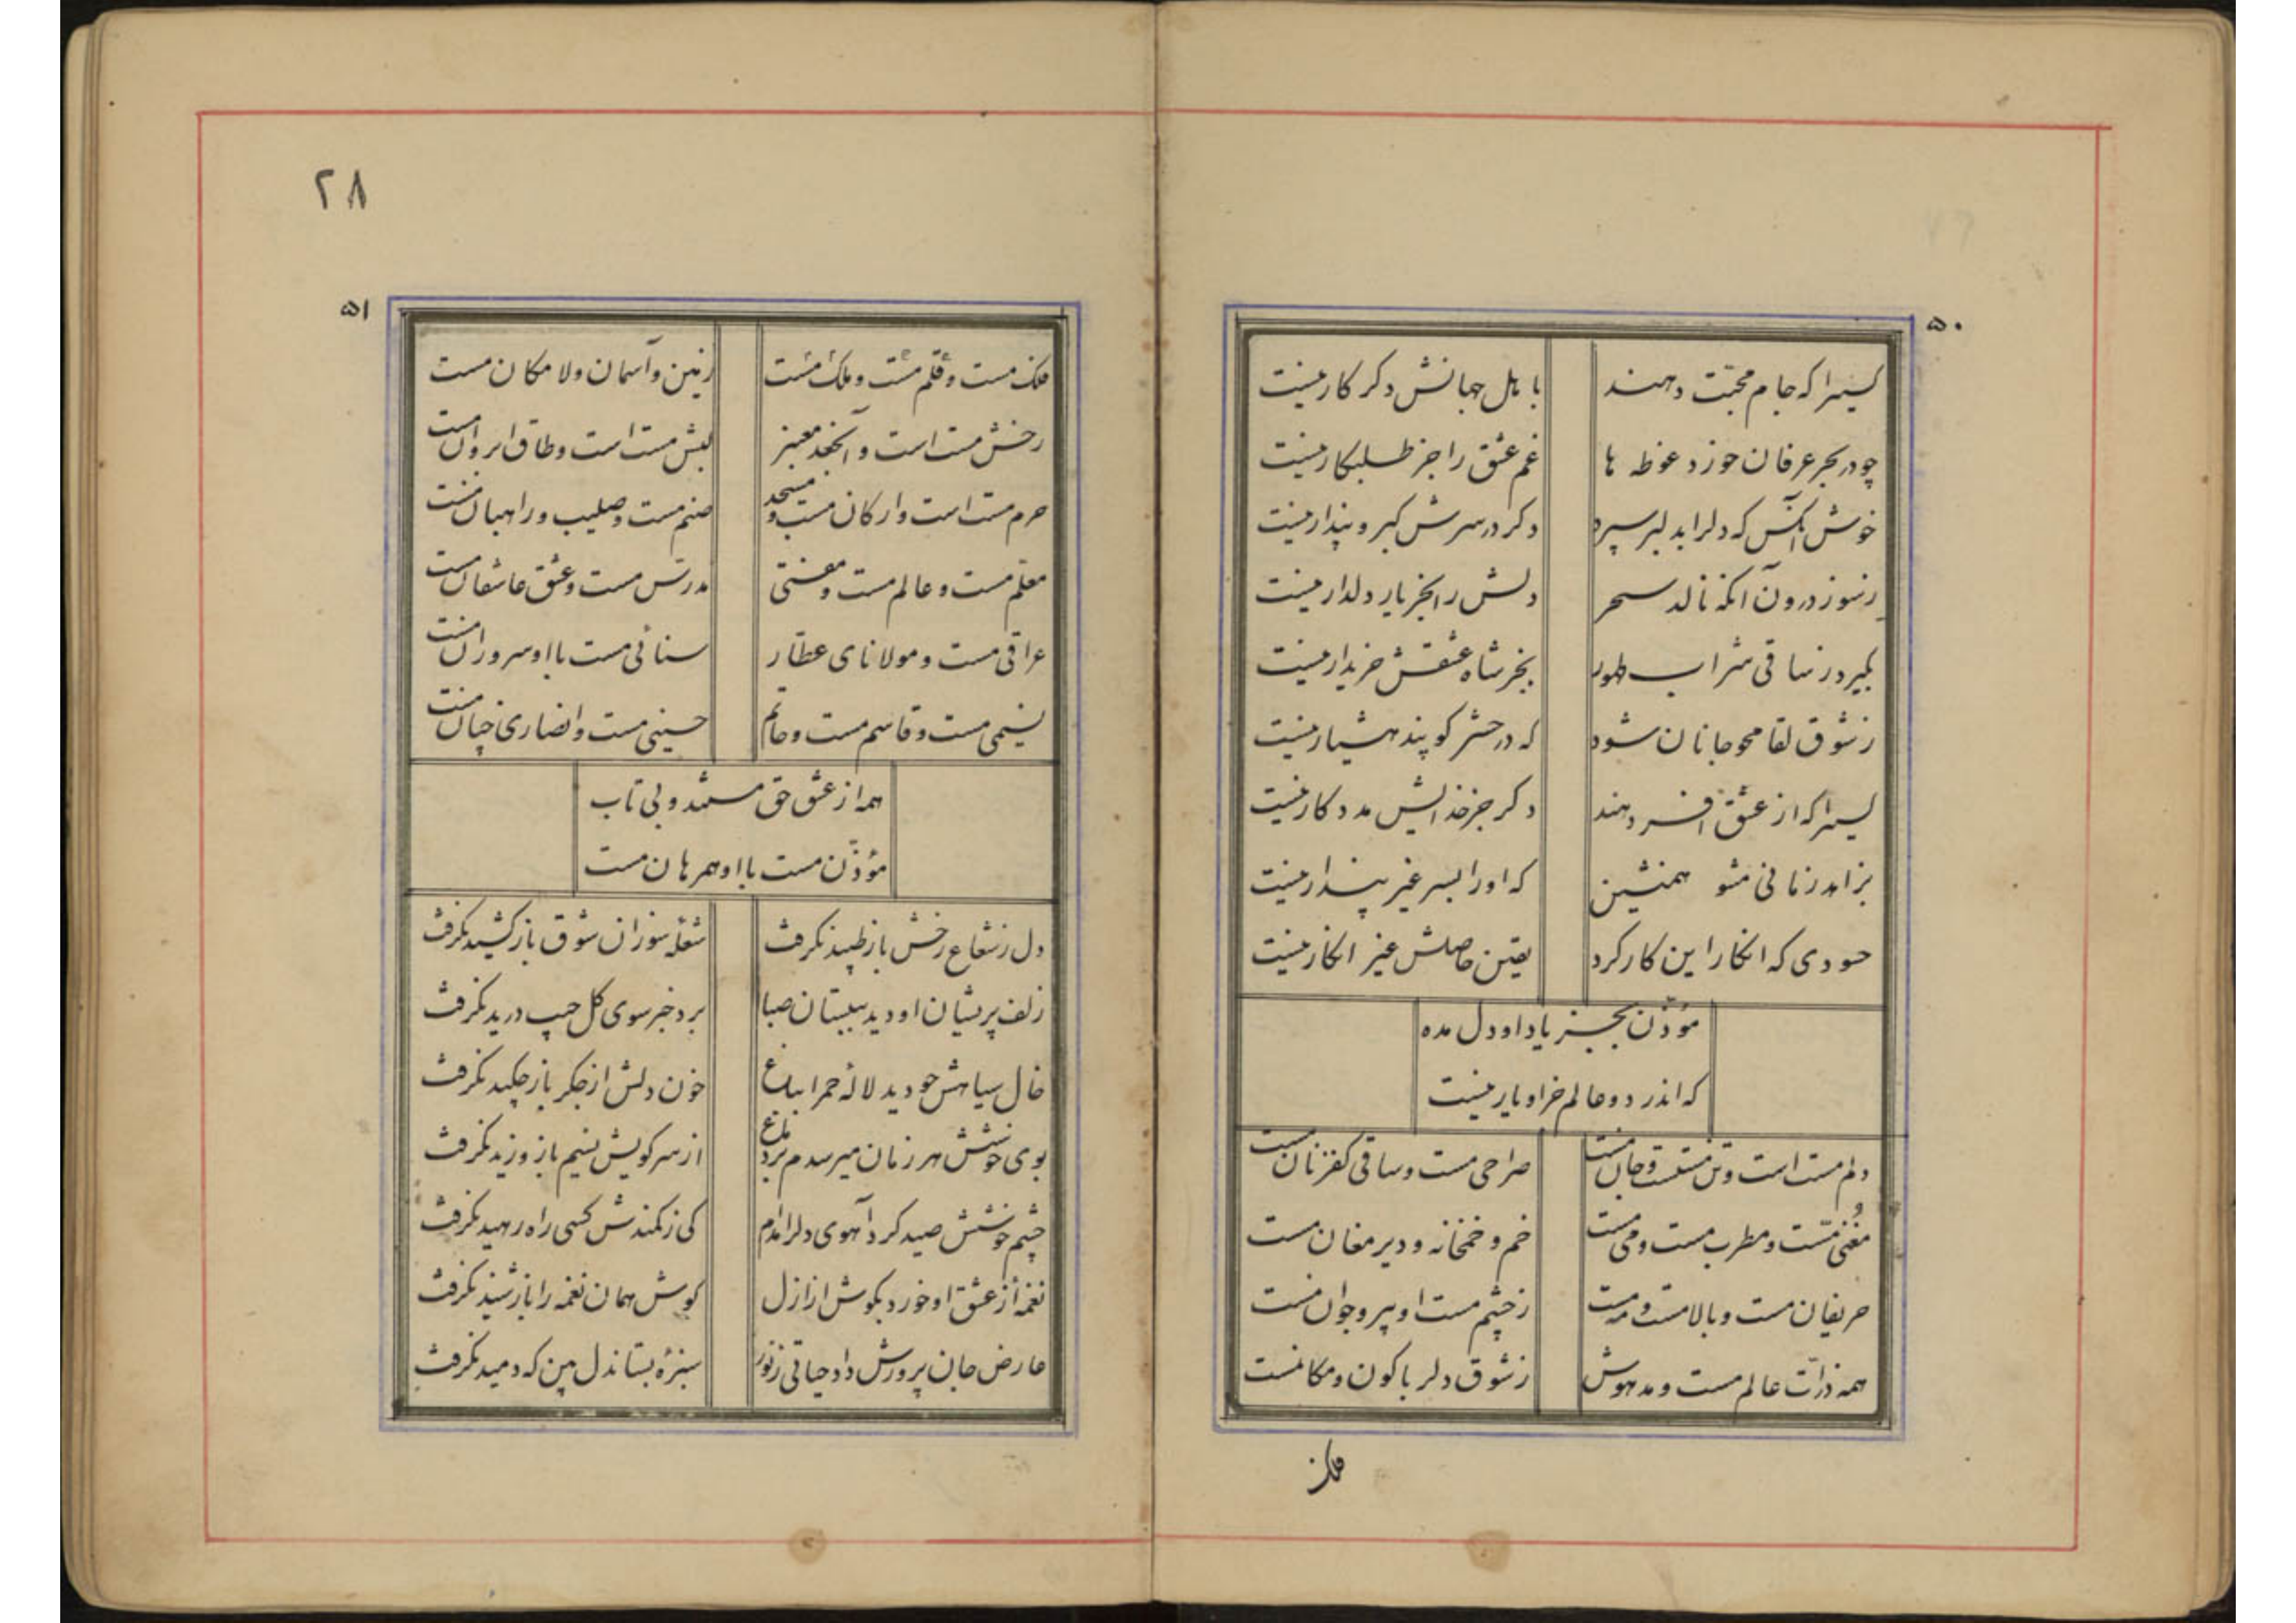 ۵۰
کسیرا که جام محبّت دهند
با اهل جهانش دکر کار نیست
چو در بحر عرفان خورد غوطه ها
غم عشق را جز طلبکار نیست
خوش آنکس که دلرا بدلبر سپرد
دکر در سرش کبر و پندار نیست
ز سوز درون آنکه نالد سحر
دلش را بجز یار دلدار نیست
بگیرد ز ساقی شراب طهور
بجز شاه عشقش خریدار نیست
ز شوق لقا محو جانان شود
که در حشر کویند هشیار نیست
کسیرا که از عشق افسر دهند
دکر جز خدایش مددکار نیست
بزاهد زمانی مشو همنشین
که اورا بسر غیر پندار نیست
حسودی که انکار این کار کرد
یقین حاصلش غیر انکار نیست
مؤذّن بجز یاد او دل مده
که اندر دو عالم جز او یار نیست
دلم مست است و تن مستست و جان مست
صراحی مست و ساقی مست
مغنّی مست و مطرب مست و می مست
خم و خمخانه و دیر مغان مست
حریفان مست و بالا مست و مه مست
ز چشم مست او پیر و جوان مست
همه ذرّات عالم مست و مدهوش
ز شوق دلربا کون و مکان مست
فلک
۲۸
۵۱
فلک مست و قلم مست و ملک مست
زمین و آسمان و لامکان مست
رخش مست است و آنجعد معنبر
لبش مست است و طاق ابروان مست
حرم مست است و ارکان مست و مسجد
صنم مست و صلیب و راهبان مست
معلّم مست و عالم مست و مفتی
مدرّس مست و عشق عاشقان مست
عراقی مست و مولانای عطّار
سنائی مست با او سروران مست
نسیمی مست و قاسم مست و حاتم
حسینی مست و انصاری چنان مست
همه از عشق حق مستند و بی تاب
مؤذّن مست با او همرهان مست
دل ز شعاع رخش باز طپید نکرفت
شعله سوزان شوق باز کشید نکرفت
زلف پریشان او دید ببستان صبا
برد خبر سوی کل جیب درید نکرفت
خال سیاهش چو دید لالهٔ حمرا بباغ
خون دلش از جکر باز چکید نکرفت
بوی خوشش هر زمان میرسدم بر دماغ
از سر کویش نسیم باز وزید نکرفت
چشم خوشش صید کرد آهوی دلرا مدام
کی ز کمندش کسی راه رهید نکرفت
نغمهٔ از عشق او خورد بکوش از ازل
کوش همان نغمه را باز شنید نکرفت
عارض جان پرورش داد حیاتی ز نور
سبزهٔ بستان دل بین که دمید نکرفت